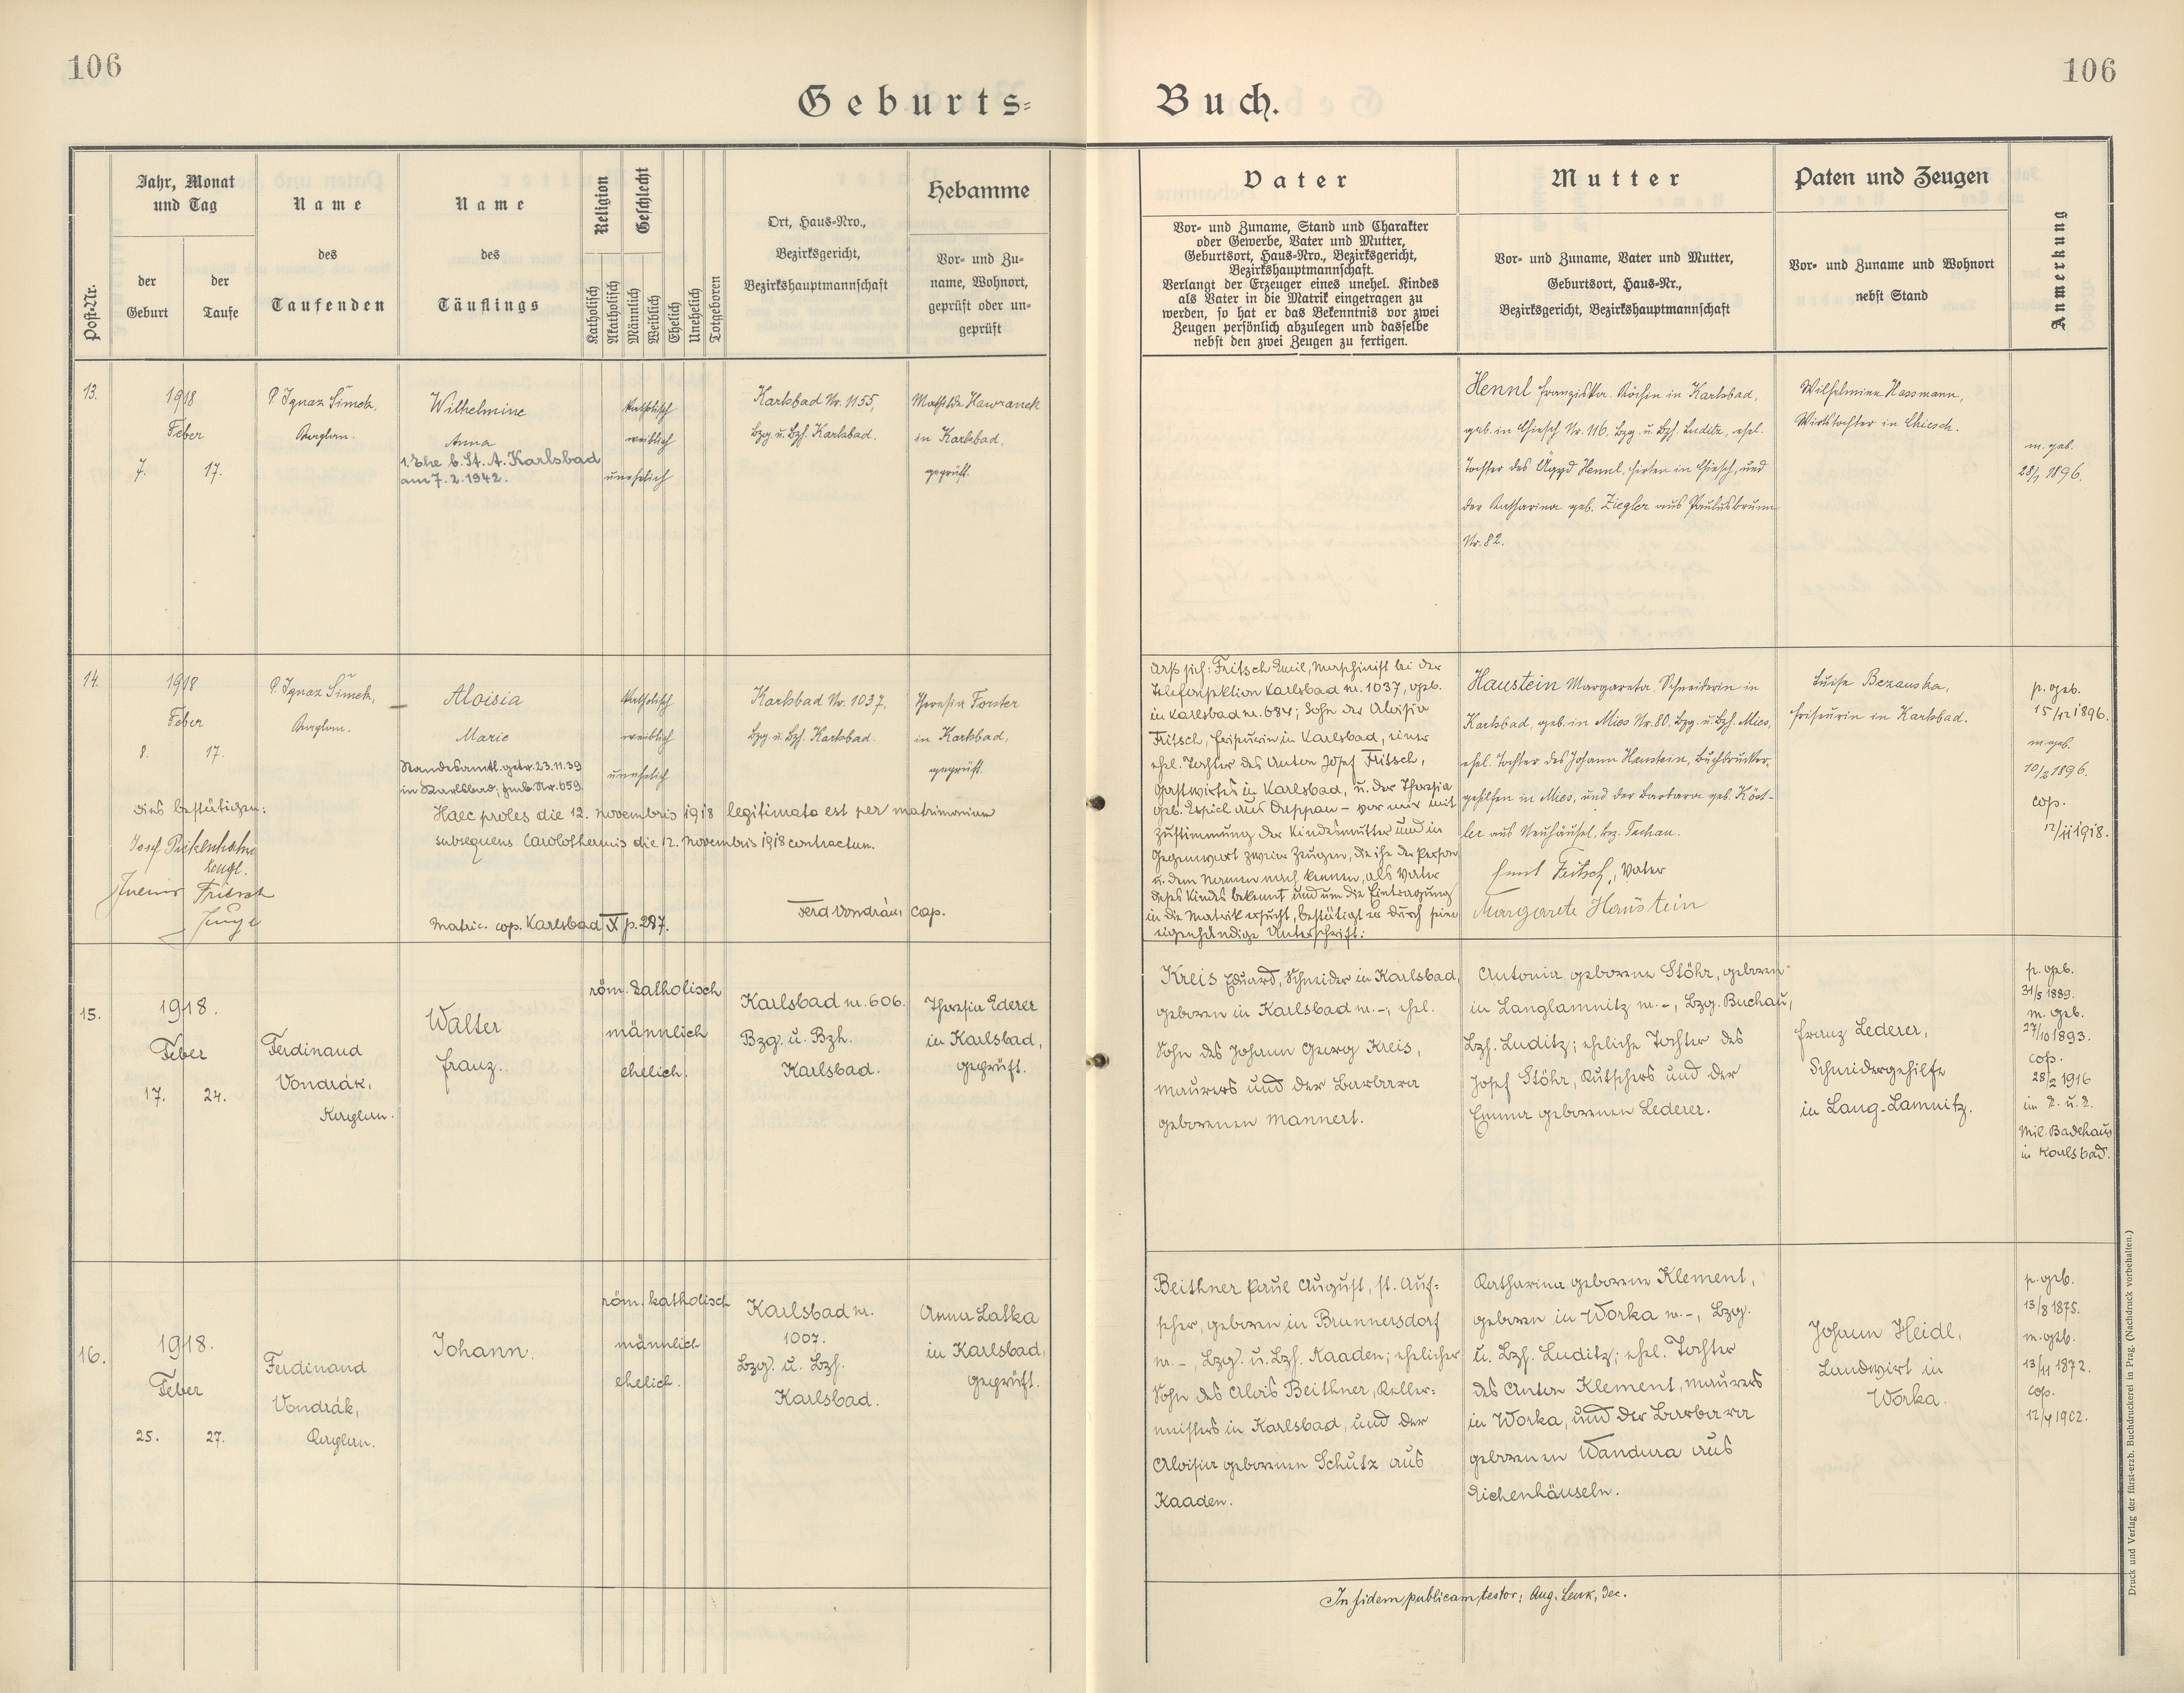 106
106
Geburts=
Buch.
Post-Nr.
Jahr, Monat
und Tag
der
Geburt
der
Taufe
Name
des
Taufenden
Name
des
Täuflings
Religion
Katholisch
Akatholisch
Geschlecht
Männlich
Weiblich
Ehelich
Unehelich
Totgeboren
Ort, Haus-Nro.,
Bezirksgericht,
Bezirkshauptmannschaft
Hebamme
Vor- und Zu-
name, Wohnort,
geprüft oder un-
geprüft
Vater
Vor- und Zuname, Stand und Charakter
oder Gewerbe, Vater und Mutter,
Geburtsort, Haus-Nro., Bezirksgericht,
Bezirkshauptmannschaft.
Verlangt der Erzeuger eines unehel. Kindes
als Vater in die Matrik eingetragen zu
werden, so hat er das Bekenntnis vor zwei
Zeugen persönlich abzulegen und dasselbe
nebst den zwei Zeugen zu fertigen.
Mutter
Vor- und Zuname, Vater und Mutter,
Geburtsort, Haus-Nr.,
Bezirksgericht, Bezirkshauptmannschaft
Paten und Zeugen
Vor- und Zuname und Wohnort
nebst Stand
Anmerkung
13.
1918
Feber
7. 17.
P. Ignaz Šimek,
Kaplan.
Wilhelmine
Anna
1. Ehe b. St. A. Karlsbad
am 7. 2. 1942.
katholisch
weiblich
unehelich
Karlsbad Nr. 1155,
Bzg. u. Bzh. Karlsbad.
Mathilde Hawranek
in Karlsbad,
geprüft.
Hennl Franziska, Köchin in Karlsbad,
geb. in Chiesch Nr. 116, Bzg. u. Bzh. Luditz, ehel.
Tochter des Ägyd Hennl, Hirten in Chiesch, und
der Katharina geb. Ziegler aus Paulusbrunn
Nr. 82.
Wilhelmine Hassmann,
Wirtstochter in Chiesch.
m. geb.
28/1 1896.
14.
1918
Feber
8. 17.
dies bestätigen:
Josef Pickenhahn
Zeuge.
Fritsch
Zeuge
P. Ignaz Šimek,
Kaplan.
Aloisia
Marie
Standesamtl. getr. 23.11.39
in Karlsbad; Fmb. Nr. 659.
katholisch
weiblich
unehelich
Karlsbad Nr. 1037,
Bzg. u. Bzh. Karlsbad.
Theresia Forster
in Karlsbad,
geprüft.
Haec proles die 12. novembris 1918 legitimata est per matrimonium
subsequens Carolothermis die 12. novembris 1918 contractum.
Ferd Vondrák, cap.
Matric. cop. Karlsbad X p. 287.
Fritsch Emil, Maschinist bei der
Telefonsektion Karlsbad nr. 1037, geb.
in Karlsbad nr. 684; Sohn der Aloisia
Fritsch, Friseurin in Karlsbad, einer
ehel. Tochter des Anton Josef Fritsch,
Gastwirtes in Karlsbad, u. der Theresia
geb. aus Duppau – vor mir mit
Zustimmung der Kindesmutter und in
Gegenwart zweier Zeugen, die ihn der Person
u. dem Namen nach kennen, als Vater
dieses Kindes bekennt und um die Eintragung
in die Matrik ersucht, bestätigt er durch seine
eigenhändige Unterschrift:
Haustein Margareta, Schneiderin in
Karlsbad, geb. in Mies Nr. 80, Bzg. u. Bzh. Mies,
ehel. Tochter des Johann Haustein, Buchdrucker-
gehilfen in Mies, und der Barbara geb. Köst-
ler aus Neuhäusel, bz. Tachau.
Emil Fritsch, Vater
Margarete Haustein
Luise Bezauska,
Friseurin in Karlsbad.
p. geb.
15/12 1896.
m. geb.
10/2 1896.
cop.
12/11 1918.
15.
1918.
Feber
17. 24.
Ferdinand
Vondrák,
Kaplan.
Walter
Franz.
röm. katholisch
männlich
ehelich.
Karlsbad nr. 606.
Bzg. u. Bzh.
Karlsbad.
Theresia Ederer
in Karlsbad,
geprüft.
Kreis Eduard, Schneider in Karlsbad,
geboren in Karlsbad nr. -, ehel.
Sohn des Johann Georg Kreis,
Maurers und der Barbara
geborenen Mannert.
Antonia geborene Stöhr, geboren
in Langlamnitz nr. -, Bzg. Buchau,
Bzh. Luditz; eheliche Tochter des
Josef Stöhr, Kutschers und der
Emma geborenen Lederer.
Franz Lederer,
Schneidergehilfe
in Lang-Lamnitz.
p. geb.
31/5 1889.
m. geb.
27/10 1893.
cop.
28/2 1916
im k. u. k.
Mil. Badehaus
in Karlsbad.
16.
1918.
Feber
25. 27.
Ferdinand
Vondrák,
Kaplan.
Johann.
röm. katholisch
männlich
ehelich.
Karlsbad nr.
1007.
Bzg. u. Bzh.
Karlsbad.
Anna Latka
in Karlsbad,
geprüft.
Beithner Paul August, st. Auf-
seher, geboren in Brunnersdorf
nr. -, Bzg. u. Bzh. Kaaden; ehelicher
Sohn des Alois Beithner, Keller-
meisters in Karlsbad, und der
Aloisia geborenen Schutz aus
Kaaden.
Katharina geborene Klement,
geboren in Worka nr. -, Bzg.
u. Bzh. Luditz; ehel. Tochter
des Anton Klement, Maurers
in Worka, und der Barbara
geborenen Wandura aus
Eichenhäuseln.
Johann Heidl,
Landwirt in
Worka.
p. geb.
13/8 1875.
m. geb.
13/11 1872.
cop.
1902.
In fidem publicam testor: Aug. Lenk, Dec.
Druck und Verlag der fürst-erzb. Buchdruckerei in Prag. (Nachdruck vorbehalten.)